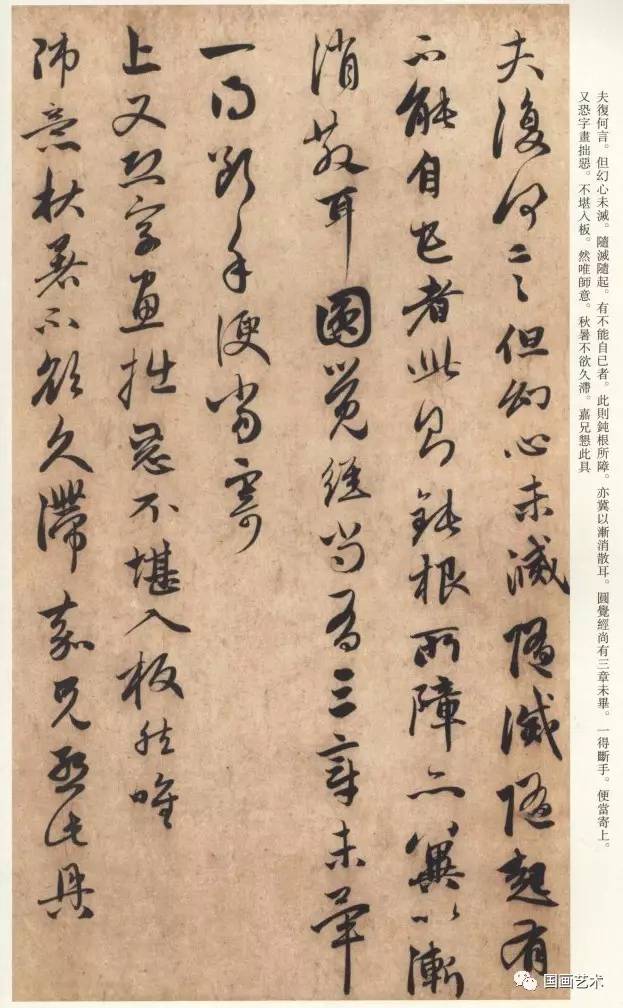 夫復何言。但幻心未滅。隨滅隨起。有不能自已者。此則鈍根所障。亦冀以漸消散耳。圓覺經尚有三章未畢。一得斷手。便當寄上。
又恐字畫拙惡。不堪入板。然唯師意。秋暑不欲久滯。嘉兄懇此具
夫復何言但幻心未滅隨滅隨起有
不能自已者此則鈍根所障亦冀以漸
消散耳圓覺經尚有三章未畢
一得斷手便當寄
上又恐字畫拙惡不堪入板然唯
師意秋暑不欲久滯嘉兄懇此具
国画艺术